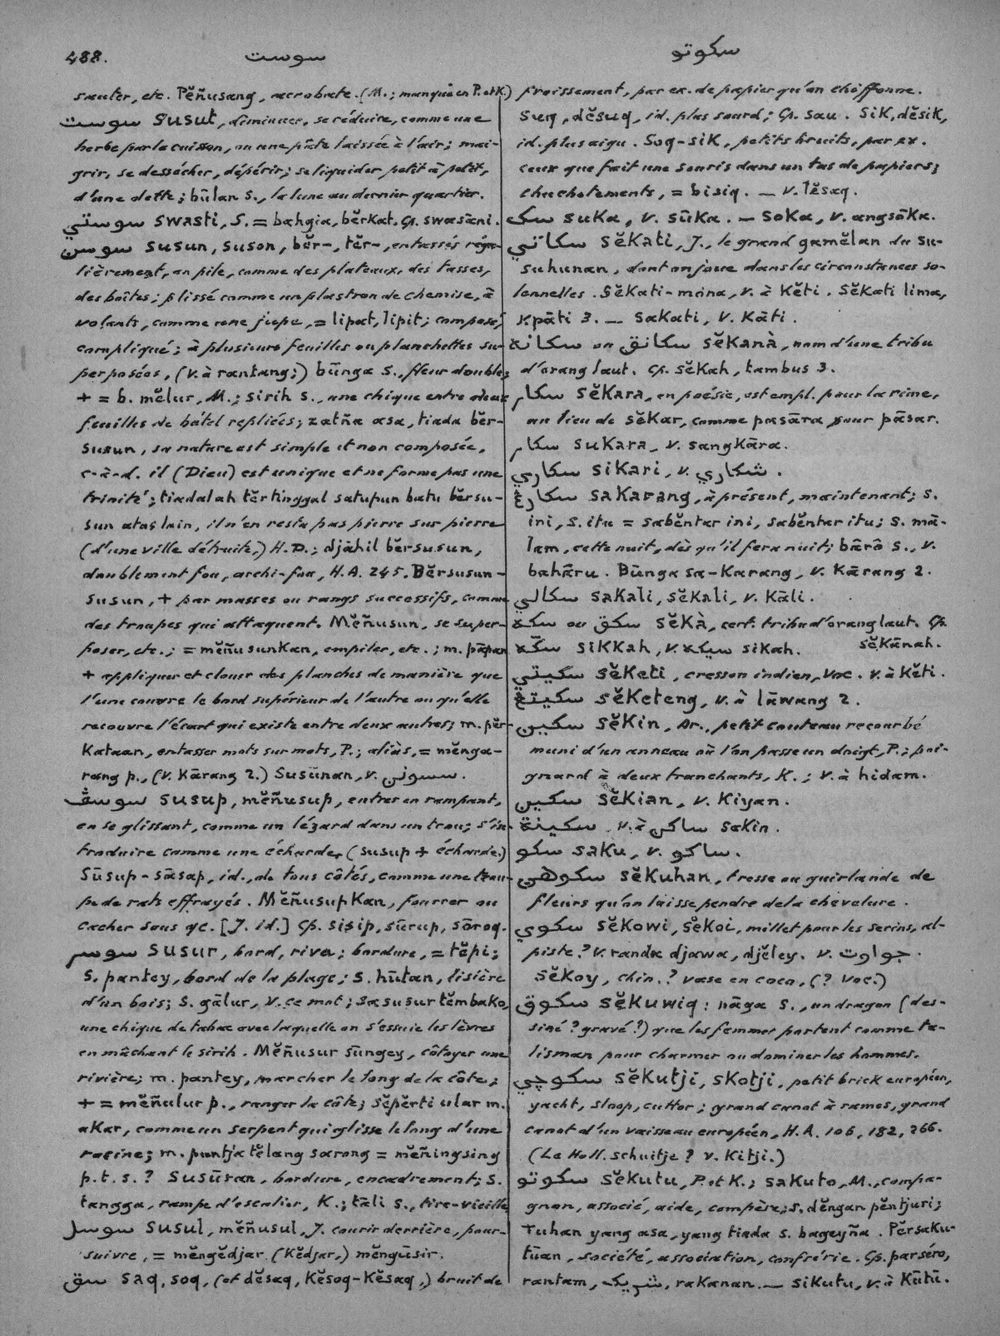 488.
سوست
سکوتو
sauter, etc. Pĕñusang, acrobate. (M.; manque en P. et K.)
سوست susut, diminuer, se réduire, comme une
herbe par la cuisson, ou une pâte laissée à l'air; mai-
grir, se dessécher, dépérir; se liquider petit à petit,
d'une dette; būlan s., la lune au dernier quartier.
سوستي swasti, S. = bahgia, bĕrkat. Cp. swasāni.
سوسن susun, suson, bĕr-, tĕr-, entassés régu-
lièrement, en pile, comme des plateaux, des tasses,
des boîtes; plissé comme un plastron de chemise, à
volants, comme une jupe, = lipat, lipit; composé,
compliqué; à plusieurs feuilles ou planchettes su-
perposées, (v. à rantang;) būnga s., fleur double;
+ = b. mĕlur, M.; sirih s., une chique entre deux
feuilles de bétel repliées; zatña asa, tiada bĕr-
susun, sa nature est simple et non composée,
c-à-d. il (Dieu) est unique et ne forme pas une
trinité; tiadalah tĕrtinggal satupun batu bĕrsu-
sun atas lain, il n'en resta pas pierre sur pierre
(d'une ville détruite,) H.D.; djāhil bĕrsusun,
doublement fou, archi-fou, H.A. 245. Bĕrsusun-
susun, + par masses ou rangs successifs, comme
des troupes qui attaquent. Mĕñusun, se super-
poser, etc.; = mĕñusunkan, empiler, etc.; m. pāpan
+ appliquer et clouer des planches de manière que
l'une couvre le bord supérieur de l'autre ou qu'elle
recouvre l'écart qui existe entre deux autres; m. pĕr-
kataan, entasser mots sur mots, P.; aliàs, = mĕnga-
rang p., (v. kārang 2.) Susūnan, v. سسونن.
سوسڤ susup, mĕñusup, entrer en rampant,
en se glissant, comme un lézard dans un trou; s'in-
troduire comme une écharde, (susup + écharde.)
Sūsup-sāsap, id., de tous côtés, comme une trou-
pe de rats effrayés. Mĕñusupkan, fourrer ou
cacher sous qc. [J. id.] Cp. sisip, sūrup, sōroq.
سوسر susur, bord, rive; bordure, = tĕpi;
s. pantey, bord de la plage; s. hūtan, lisière
d'un bois; s. gālur, v. ce mot; sasusur tĕmbako,
une chique de tabac avec laquelle on s'essuie les lèvres
en mâchant le sirih. Mĕñusur sūngey, côtoyer une
rivière; m. pantey, marcher le long de la côte;
+ = mĕñulur p., ranger la côte; sĕpĕrti ular m.
akar, comme un serpent qui glisse le long d'une
racine; m. puntja tĕlang sarong = mĕñingsing
p. t. s.? Susūran, bordure, encadrement; s.
tangga, rampe d'escalier, K.; tāli s., tire-vieille
سوسل susul, mĕñusul, J. courir derrière, pour-
suivre, = mĕngĕdjar, (kĕdjar,) mĕngusir.
سق saq, soq, (et dĕsaq, kĕsoq-kĕsaq,) bruit de
froissement, par ex. de papier qu'on chiffonne.
Suq, dĕsuq, id. plus sourd; Cp. sau. Sik, dĕsik,
id. plus aigu. Soq-sik, petits bruits, par ex.
ceux que fait une souris dans un tas de papiers;
chuchotements, = bisiq. — v. lĕsaq.
سک suka, v. sūka. — soka, v. angsōka.
سکاتي sĕkati, J., le grand gamĕlan du su-
suhunan, dont on joue dans les circonstances so-
lennelles. Sĕkati-mōna, v. à kĕti. Sĕkati lima,
kpāti 3. — sakati, v. kāti.
سکانة ou سکانق sĕkanà, nom d'une tribu
d'orang laut. Cp. sĕkah, tambus 3.
سکار sĕkara, en poésie, est empl. pour la rime,
au lieu de sĕkar, comme pasāra pour pāsar.
سکار sukara, v. sangkāra.
سکاري sikari, v. شکاري.
سکارڠ sakarang, à présent, maintenant; s.
ini, s. itu = sabĕntar ini, sabĕntar itu; s. mā-
lam, cette nuit, dès qu'il fera nuit; bārō s., v.
bahāru. Būnga sa-karang, v. kārang 2.
سکالي sakali, sĕkali, v. kāli.
سکه ou سکق sĕkà, cert. tribu d'orang laut. Cp.
sĕkānah.
سکّه sikkah, v. سيکه sikah.
سکيتي sĕketi, cresson indien, Voc. v. à kĕti.
سکيتڠ sĕketeng, v. à lāwang 2.
سکين sĕkin, Ar., petit couteau recourbé
muni d'un anneau où l'on passe un doigt, P.; poi-
gnard à deux tranchants, K.; v. à hidam.
سکين sĕkian, v. kiyan.
سکينة, v. à ساکن sakin.
سکو saku, v. ساکو.
سکوهن sĕkuhan, tresse ou guirlande de
fleurs qu'on laisse pendre de la chevelure.
سکوي sĕkowi, sĕkoi, millet pour les serins, al-
piste? v. randa djawa, djĕley. v. جواوت.
Sĕkoy, chin.? vase en coco, (? Voc.)
سکوق sĕkuwiq: nāga s., un dragon (des-
siné? gravé?) que les femmes portent comme ta-
lisman pour charmer ou dominer les hommes.
سکوچي sĕkutji, skotji, petit brick européen,
yacht, sloop, cutter; grand canot à rames, grand
canot d'un vaisseau européen, H.A. 106, 182, 266.
(Le Holl. schuitje? v. kitji.)
سکوتو sĕkutu, P. et K.; sakuto, M., compa-
gnon, associé, aide, compère; s. dĕngan pĕntjuri;
Tuhan yang asa, yang tiada s. bageyña. Pĕrsaku-
tūan, société, association, confrérie. Cp. parséro,
rantam, شريک, rakanan. — sikutu, v. à kūtū.